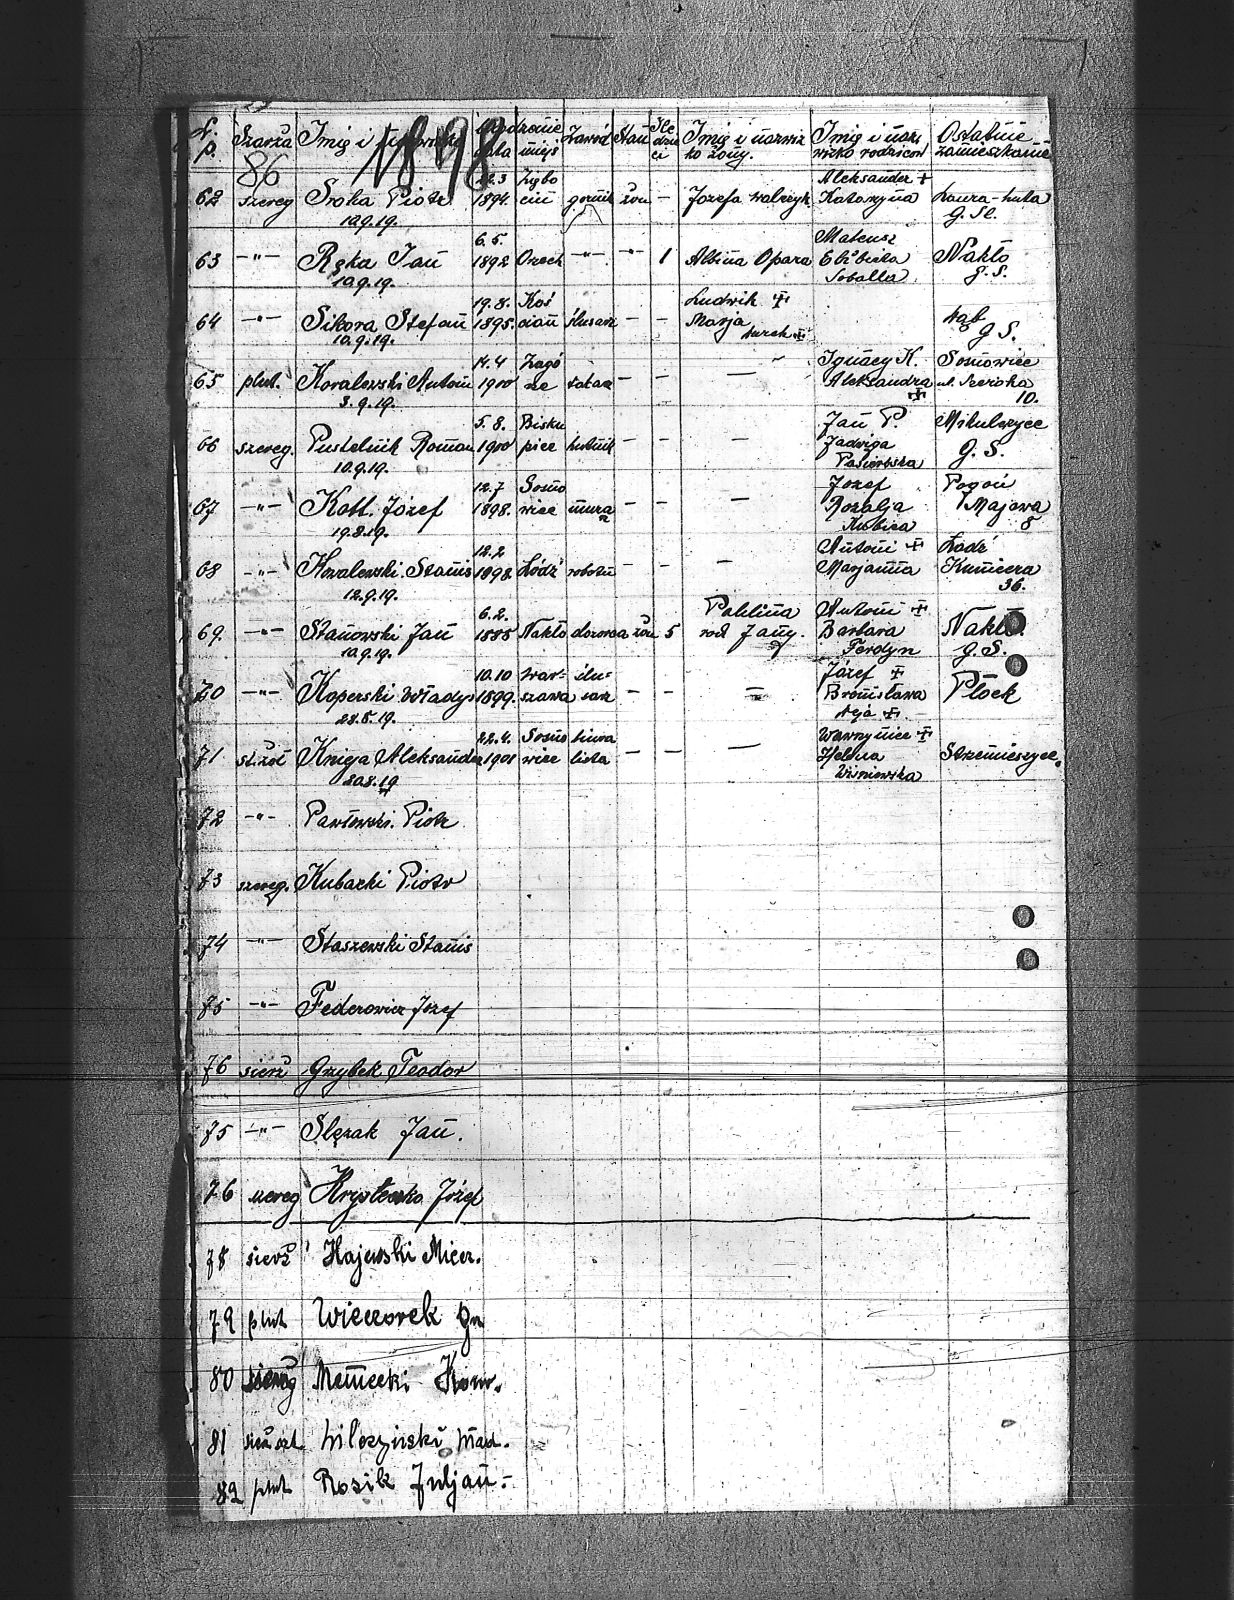 L. p. Szarża Imię i nazwisko Urodzenie data miejs Zawód Stan Ile dzieci Imię i nazwisko żony. Imię i nazwisko rodziców Ostatnie zamieszkanie
86 1898
62 szereg Sroka Piotr 1894. górnik żon — Józefa Walczyk Aleksander + Katarzyna Laura-huta G. Śl.
10.9.19.
63 —"— Ręka Jan 6.5. 1892 Orzech —"— —"— 1 Albina Opara Mateusz Elżbieta Soballa Nakło g. S.
10.9.19.
64 —"— Sikora Stefan 19.8. 1895. ślusarz — — Ludwik + Marja +  G S.
10.9.19.
65 plut. Kowalewski Antoni 14.4 1900 Zagó rze — — — Ignacy K. Aleksandra + Sosnowiec ul. Szeroka 10.
3.9.19.
66 szereg. Pustelnik Roman 5.8. 1900 Bisku pice hutnik — — — Jan P. Jadwiga Mikulczyce G. S.
10.9.19.
67 —"— Kott. Józef 12.7 1898. Sosno wiec — — — Józef Rozalja Kubica Pogoń Majowa 8
19.8.19.
68 —"— Kowalewski. Stanis 12.2 1898. Łódź robotn — — — Antoni + Marjanna Łódź 36.
12.9.19.
69. —"— Stanowski Jan 6.2. 1885 Nakło dozorca żon 5 Paulina Antoni + Barbara Ferdyn Nakło. g. S.
10.9.19.
70 —"— Koperski Władys 10.10 1899. War- szawa ślu- sarz — — — Józef + Bronisława + Płock
28.8.19.
71 st. żoł Knieja Aleksander 22.4. 1901 Sosno wiec biura lista — — — Wawrzyniec + Helena Wiśniewska Strzemieszyce.
20.8.19
72 —"— Pawłowski. Piotr
73 szereg. Kubacki Piotr
74 —"— Staszewski Stanis
75 —"— Federowicz Józef
76 sierż Grzybek Teodor
75 —"— Ślęzak Jan.
76 szereg Józef
78 sierż Hajewski Miecz.
79 plut Wieczorek
80 szereg
81
82 plut Rosik Juljan.-